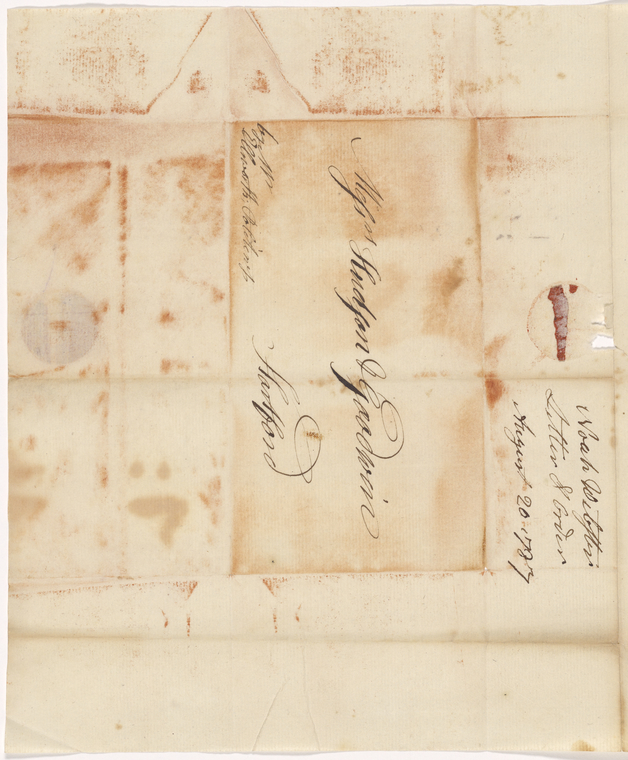 Messrs Hudson & Goodwin
Hartford
by Mr
Noah Webster
Letter & Order
August 20 1787